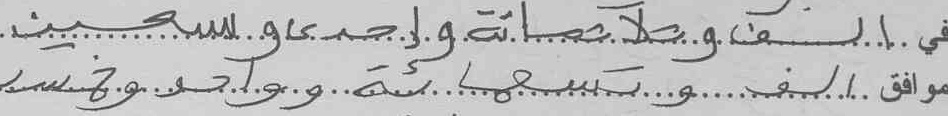 في الف و ثلاثمائة و إحدى و سبعين
موافق الف و تسعمائة و واحد و خمس